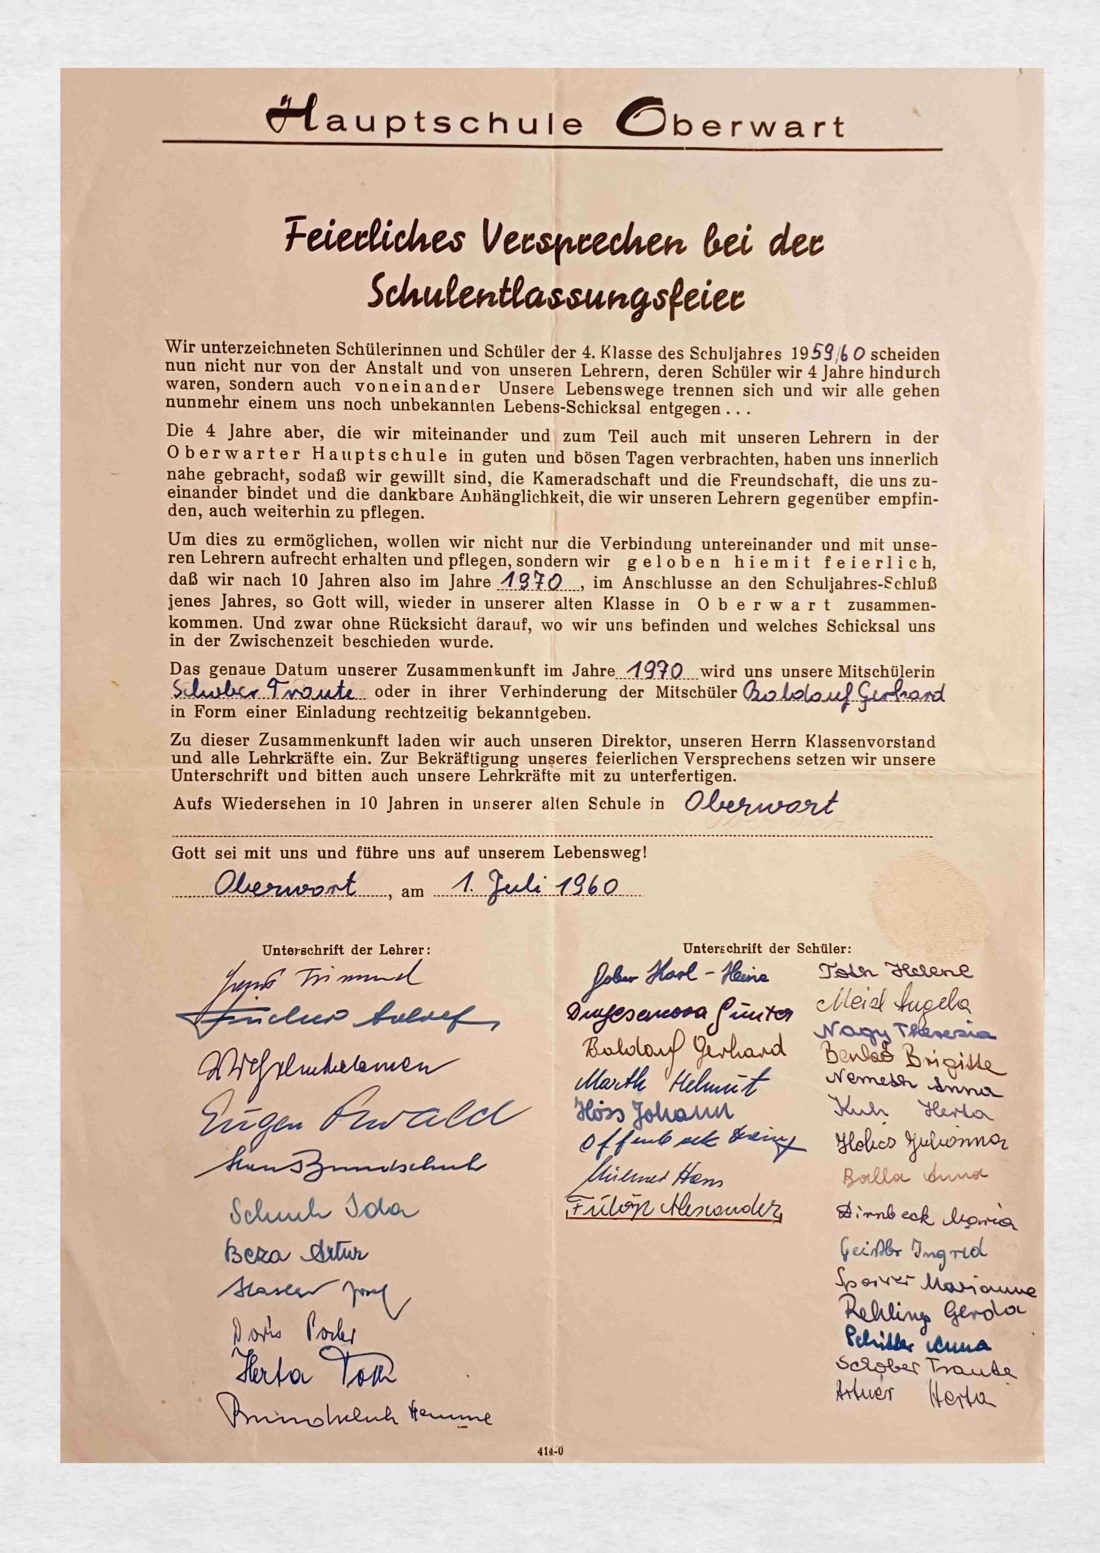 Hauptschule Oberwart
Feierliches Versprechen bei der
Schulentlassungsfeier
Wir unterzeichneten Schülerinnen und Schüler der 4. Klasse des Schuljahres 1959/60 scheiden
nun nicht nur von der Anstalt und von unseren Lehrern, deren Schüler wir 4 Jahre hindurch
waren, sondern auch voneinander Unsere Lebenswege trennen sich und wir alle gehen
nunmehr einem uns noch unbekannten Lebens-Schicksal entgegen . . .
Die 4 Jahre aber, die wir miteinander und zum Teil auch mit unseren Lehrern in der
Oberwarter Hauptschule in guten und bösen Tagen verbrachten, haben uns innerlich
nahe gebracht, sodaß wir gewillt sind, die Kameradschaft und die Freundschaft, die uns zu-
einander bindet und die dankbare Anhänglichkeit, die wir unseren Lehrern gegenüber empfin-
den, auch weiterhin zu pflegen.
Um dies zu ermöglichen, wollen wir nicht nur die Verbindung untereinander und mit unse-
ren Lehrern aufrecht erhalten und pflegen, sondern wir geloben hiemit feierlich,
daß wir nach 10 Jahren also im Jahre 1970, im Anschlusse an den Schuljahres-Schluß
jenes Jahres, so Gott will, wieder in unserer alten Klasse in Oberwart zusammen-
kommen. Und zwar ohne Rücksicht darauf, wo wir uns befinden und welches Schicksal uns
in der Zwischenzeit beschieden wurde.
Das genaue Datum unserer Zusammenkunft im Jahre 1970 wird uns unsere Mitschülerin
Schober Traute oder in ihrer Verhinderung der Mitschüler Baldauf Gerhard
in Form einer Einladung rechtzeitig bekanntgeben.
Zu dieser Zusammenkunft laden wir auch unseren Direktor, unseren Herrn Klassenvorstand
und alle Lehrkräfte ein. Zur Bekräftigung unseres feierlichen Versprechens setzen wir unsere
Unterschrift und bitten auch unsere Lehrkräfte mit zu unterfertigen.
Aufs Wiedersehen in 10 Jahren in unserer alten Schule in Oberwart
Gott sei mit uns und führe uns auf unserem Lebensweg!
Oberwart, am 1. Juli 1960
Unterschrift der Lehrer:
Trimmel
Adolf
Eugen Ewald
Hans Bundschuh
Schuh Ida
Beza Artur
Josef
Doris
Herta Toth
Bundschuh
Unterschrift der Schüler:
Karl-Heinz
Günter
Baldauf Gerhard
Marth Helmut
Höss Johann
Offenbeck
Hans
Fülöp Alexander
Toth Helene
Meixl Angela
Nagy Theresia
Benkö Brigitte
Nemeth Anna
Kuh Herta
Holics Julianna
Balla Anna
Dirnbeck Maria
Geißler Ingrid
Marianne
Rehling Gerda
Schiller Anna
Schober Traute
Artner Herta
414-0